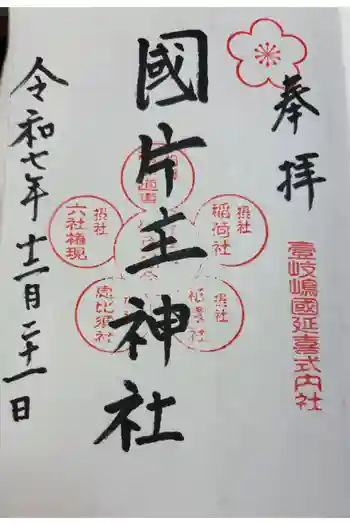 奉拝
壹岐嶋國延喜式内社
國片主神社
摂社
稲荷社
摂社
六社権現
摂社
恵比須社
令和七年十二月二十一日